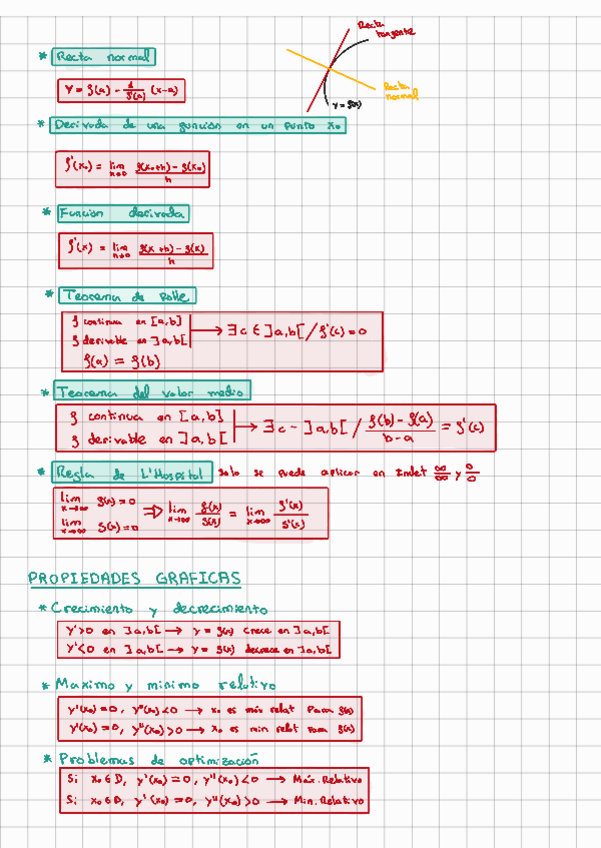 Recta tangente
* Recta normal
Y = f(a) - 1/f'(a) (x-a)
Recta normal
y = f(x)
* Derivada de una función en un punto x₀
f'(x₀) = lim h→0 f(x₀+h) - f(x₀) / h
* Función derivada
f'(x) = lim h→0 f(x+h) - f(x) / h
* Teorema de Rolle
f continua en [a,b]
f derivable en ]a,b[ → ∃ c ∈ ]a,b[ / f'(c) = 0
f(a) = f(b)
* Teorema del valor medio
f continua en [a,b]
f derivable en ]a,b[ → ∃ c ~ ]a,b[ / f(b) - f(a) / b-a = f'(c)
* Regla de L'Hospital solo se puede aplicar en Indet ∞/∞ y 0/0
lim x→∞ f(x) = 0
lim x→∞ g(x) = 0 ⇒ lim x→∞ f(x)/g(x) = lim x→∞ f'(x)/g'(x)
PROPIEDADES GRAFICAS
* Crecimiento y decrecimiento
y'>0 en ]a,b[ → y = f(x) crece en ]a,b[
y'<0 en ]a,b[ → y = f(x) decrece en ]a,b[
* Maximo y minimo relativo
y'(x₀) = 0, y''(x₀) < 0 → x₀ es máx relat para f(x)
y'(x₀) = 0, y''(x₀) > 0 → x₀ es min relat para f(x)
* Problemas de optimización
Si x₀ ∈ D, y'(x₀) = 0, y''(x₀) < 0 → Máx. Relativo
Si x₀ ∈ D, y'(x₀) = 0, y''(x₀) > 0 → Min. Relativo